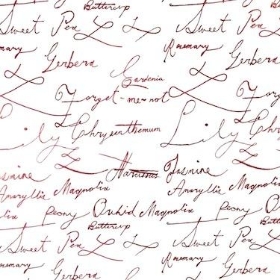 Buttercup
Sweet Pea Sweet Pea
Rosemary Rosemary
Gerbera Gerbera
Gardenia
Forget-me-not
Lily Chrysanthemum Lily
Narcissus Jasmine
Amaryllis Magnolia Amaryllis
Peony Orchid Magnolia Peony
Buttercup
Sweet Pea Sweet Pea
Rosemary Rosemary
Gerbera Gerbera